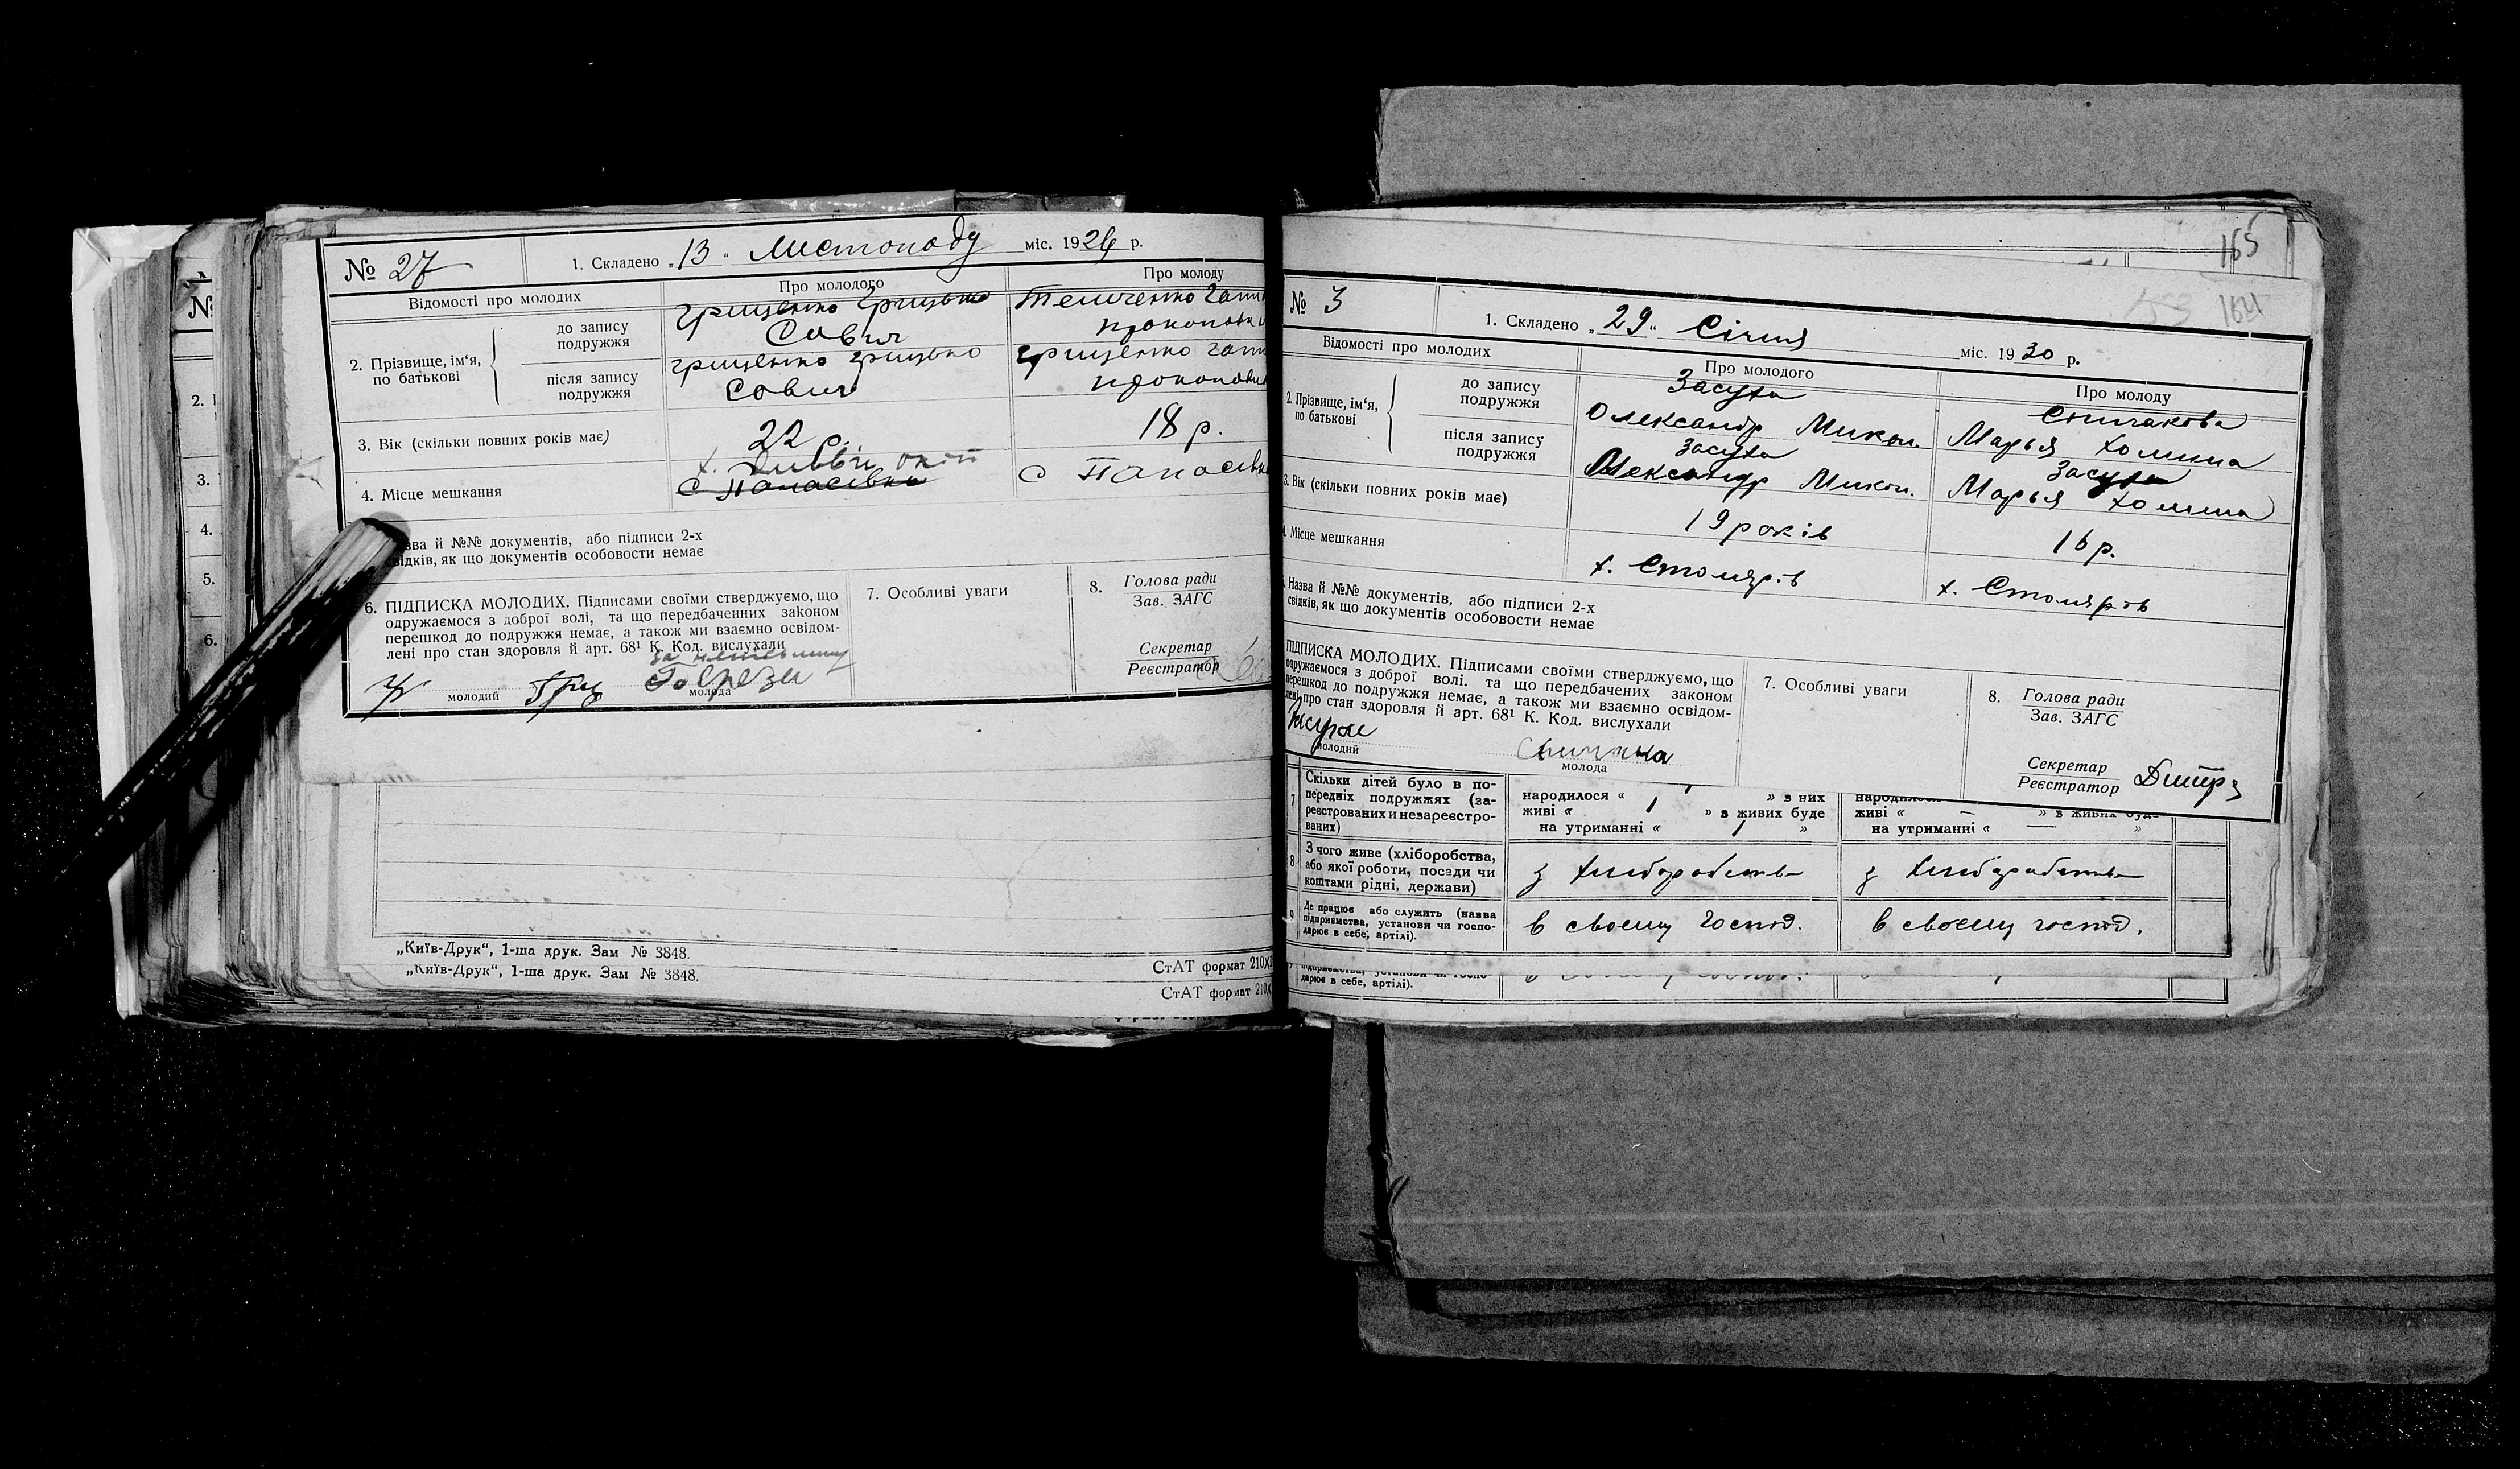 № 27
1. Складено „13“ Листопаду міс. 1926 р.
Відомості про молодих
Про молодого
Про молоду
2. Прізвище, ім‘я, по батькові
до запису подружжя
Грищенко Грицько
Сович
Тельченко
після запису подружжя
Грищенко Грицько
Сович
Грищенко
3. Вік (скільки повних років має)
22
18 р.
4. Місце мешкання
х.
с Панасівка
с Панасівка
№№ документів, або підписи 2-х
свідків, як що документів особовости немає
6. ПІДПИСКА МОЛОДИХ. Підписами своїми стверджуємо, що
одружаємося з доброї волі, та що передбаченних законом
перешкод до подружжя немає, а також ми взаємно освідом-
лені про стан здоровля й арт. 68¹ К. Код. вислухали
молодий
Гриц
молода
7. Особливі уваги
8. Голова ради
Зав. ЗАГС
Секретар
Реєстратор
„Київ-Друк“, 1-ша друк. Зам № 3848.
„Київ-Друк“, 1-ша друк. Зам № 3848.
СтАТ формат 210X
СтАТ формат 210X
№
2.
3.
4.
5.
6.
165
164
№ 3
1. Складено „29“ Січня міс. 1930 р.
Відомості про молодих
Про молодого
Про молоду
2. Прізвище, ім‘я, по батькові
до запису подружжя
Засуха
Олександр Микол.
Спичакова
Марья Хомина
після запису подружжя
Засуха
Олександр Микол.
Засуха
Марья Хомина
3. Вік (скільки повних років має)
19 років
16 р.
Місце мешкання
х. Столярів
х. Столярів
Назва й №№ документів, або підписи 2-х
свідків, як що документів особовости немає
ПІДПИСКА МОЛОДИХ. Підписами своїми стверджуємо, що
одружаємося з доброї волі. та що передбачених законом
перешкод до подружжя немає, а також ми взаємно освідом-
лені про стан здоровля й арт. 68¹ К. Код. вислухали
молодий
молода
7. Особливі уваги
8. Голова ради
Зав. ЗАГС
Секретар
Реєстратор
7 Скільки дітей було в по-
передніх подружжях (за-
реєстрованих и незареєстро-
ваних)
народилося « » з них
живі « 1 » з живих буде
на утриманні « 1 »
живі « — » з живих буде
на утриманні « — »
8 З чого живе (хліборобства,
або якої роботи, посади чи
коштами рідні, держави)
з хліборобства
з хліборобства
9 Де працює або служить (назва
підприємства, установи чи госпо-
дарює в себе, артілі).
в своєму господ.
в своєму господ.
дарює в себе, артілі).